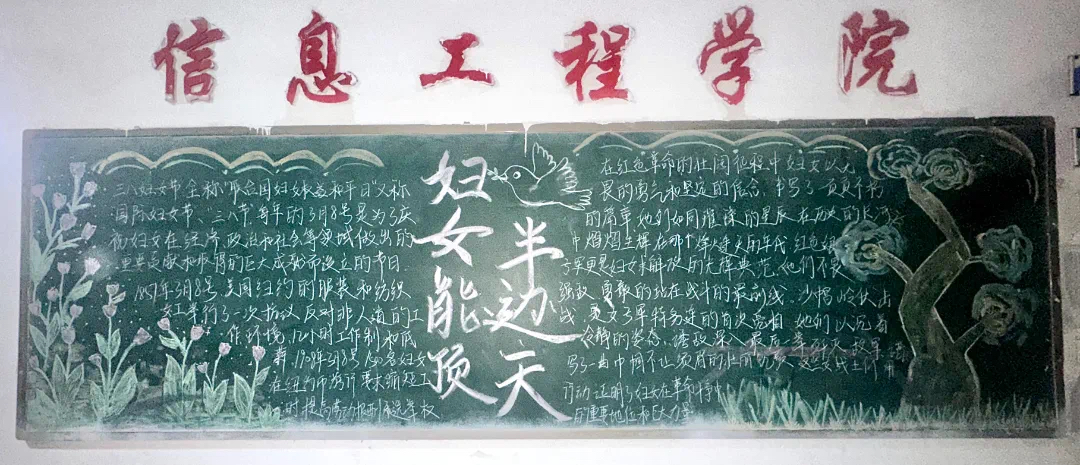 信息工程学院
妇女能顶
半边天
三八妇女节全称“联合国妇女权益和平日”又称
国际妇女节、三八节每年的3月8号是为了庆
祝妇女在经济政治和社会等领域做出的
重要贡献和取得的巨大成就而设立的节日
1857年3月8号美国纽约的服装和纺织
女工举行了一次抗议反对非人道的工
作环境,12小时工作制和低
薪,1908年3月8号,1500名妇女
在纽约市游行要求缩短工
时提高劳动报酬
在红色革命的壮阔征程中妇女以无
畏的勇气和坚定的信念,书写了一页页不朽
的篇章她们如同璀璨的星辰在历史的长河
中熠熠生辉在那个烽火连天的年代红色娘
子军更是妇女解放的光辉典范她们不畏
强敌,勇敢的站在战斗的最前线,沙帽岭伏击
战,更是了军特务连的首次亮相她们以沉着
冷静的姿态,诱敌深入最后
写了一曲巾帼不让须眉的壮丽
行动证明了妇女在革命
的重要地位和巨大力量